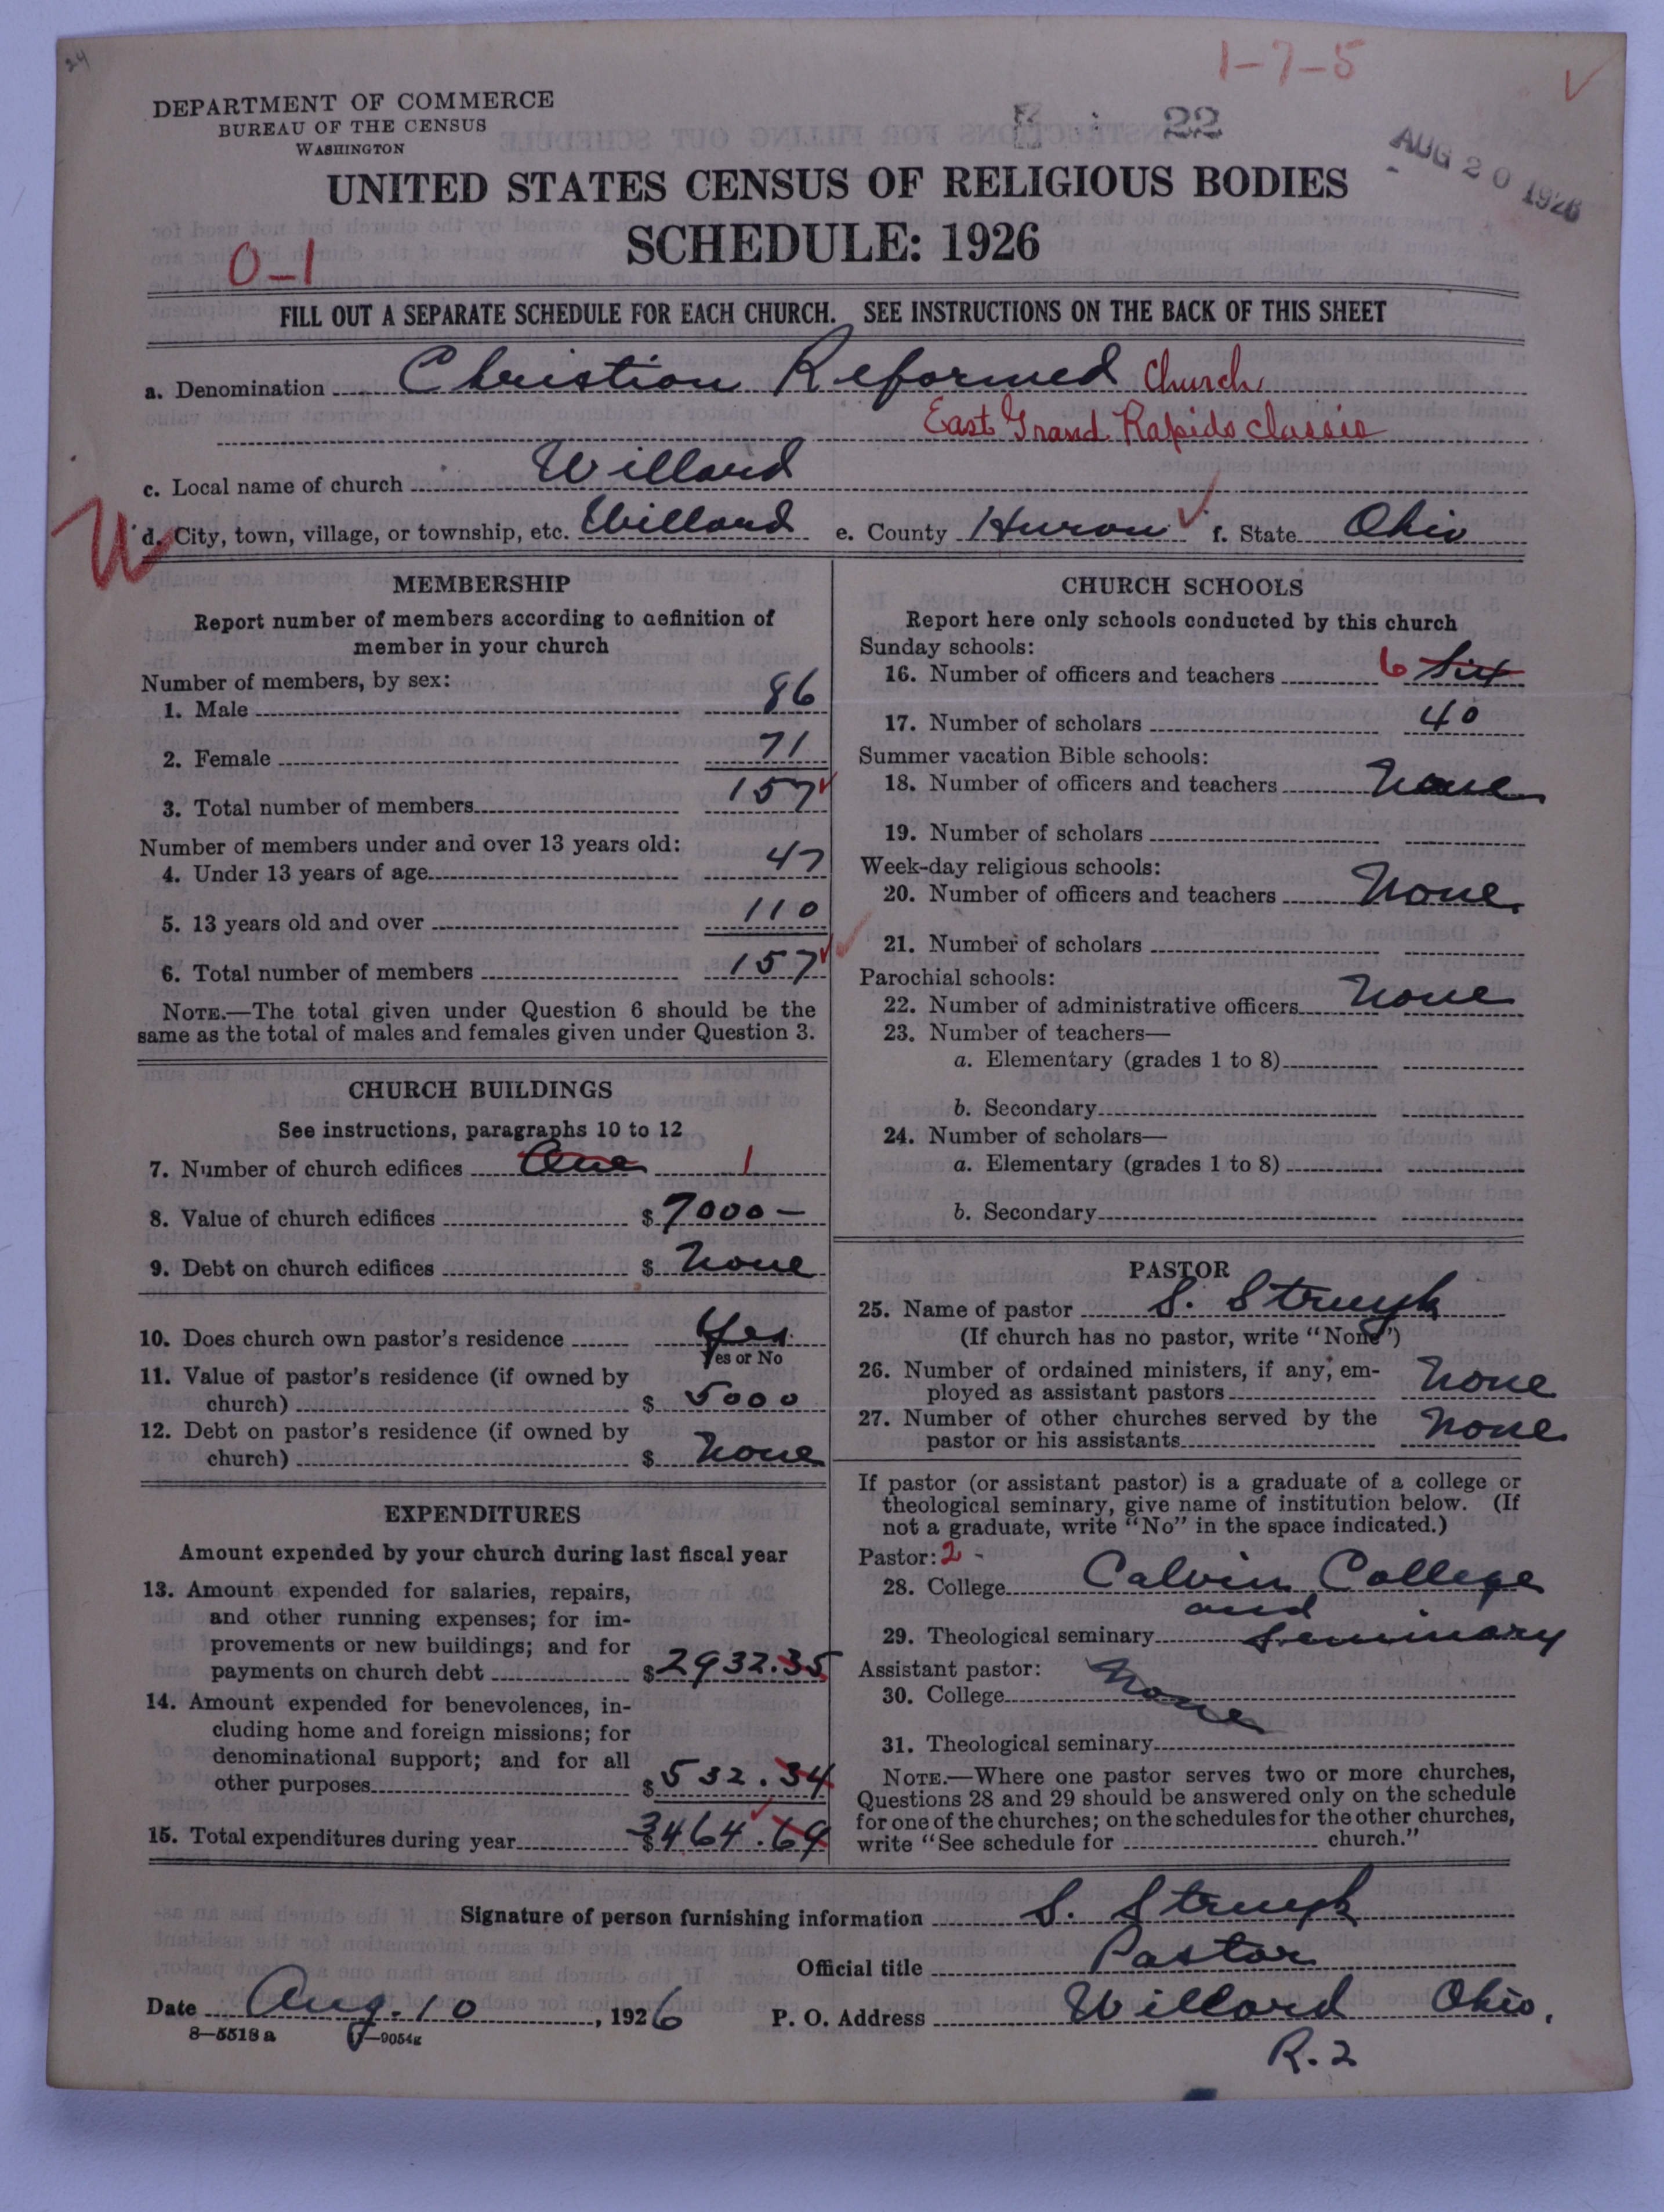 24
1-7-5
DEPARTMENT OF COMMERCE
BUREAU OF THE CENSUS
WASHINGTON
22
AUG 20 1926
UNITED STATES CENSUS OF RELIGIOUS BODIES
SCHEDULE: 1926
0-1
FILL OUT A SEPARATE SCHEDULE FOR EACH CHURCH. SEE INSTRUCTIONS ON THE BACK OF THIS SHEET
a. Denomination Christian Reformed Church,
East Grand Rapids classis
c. Local name of church Willard
W d. City, town, village, or township, etc. Willard e. County Huron f. State Ohio
MEMBERSHIP
Report number of members according to definition of
member in your church
Number of members, by sex:
1. Male 86
2. Female 71
3. Total number of members 157
Number of members under and over 13 years old:
4. Under 13 years of age 47
5. 13 years old and over 110
6. Total number of members 157
NOTE.—The total given under Question 6 should be the
same as the total of males and females given under Question 3.
CHURCH BUILDINGS
See instructions, paragraphs 10 to 12
7. Number of church edifices One 1
8. Value of church edifices $ 7000 –
9. Debt on church edifices $ None
10. Does church own pastor's residence Yes
Yes or No
11. Value of pastor's residence (if owned by
church) $ 5000
12. Debt on pastor's residence (if owned by
church) $ None
EXPENDITURES
Amount expended by your church during last fiscal year
13. Amount expended for salaries, repairs,
and other running expenses; for im-
provements or new buildings; and for
payments on church debt $ 2932.35
14. Amount expended for benevolences, in-
cluding home and foreign missions; for
denominational support; and for all
other purposes $ 532.34
15. Total expenditures during year $ 3464.69
CHURCH SCHOOLS
Report here only schools conducted by this church
Sunday schools:
16. Number of officers and teachers 6 Six
17. Number of scholars 40
Summer vacation Bible schools:
18. Number of officers and teachers None
19. Number of scholars
Week-day religious schools:
20. Number of officers and teachers None
21. Number of scholars
Parochial schools:
22. Number of administrative officers None
23. Number of teachers—
a. Elementary (grades 1 to 8)
b. Secondary
24. Number of scholars—
a. Elementary (grades 1 to 8)
b. Secondary
PASTOR
25. Name of pastor S. Struyk
(If church has no pastor, write "None")
26. Number of ordained ministers, if any, em-
ployed as assistant pastors None
27. Number of other churches served by the
pastor or his assistants None
If pastor (or assistant pastor) is a graduate of a college or
theological seminary, give name of institution below. (If
not a graduate, write "No" in the space indicated.)
Pastor: 2 -
28. College Calvin College
and
29. Theological seminary Seminary
Assistant pastor:
30. College None
31. Theological seminary
NOTE.—Where one pastor serves two or more churches,
Questions 28 and 29 should be answered only on the schedule
for one of the churches; on the schedules for the other churches,
write "See schedule for church."
Signature of person furnishing information S. Struyk
Official title Pastor
Date Aug. 10, 1926 P. O. Address Willard Ohio,
8—5518a 7—9054g
R.2